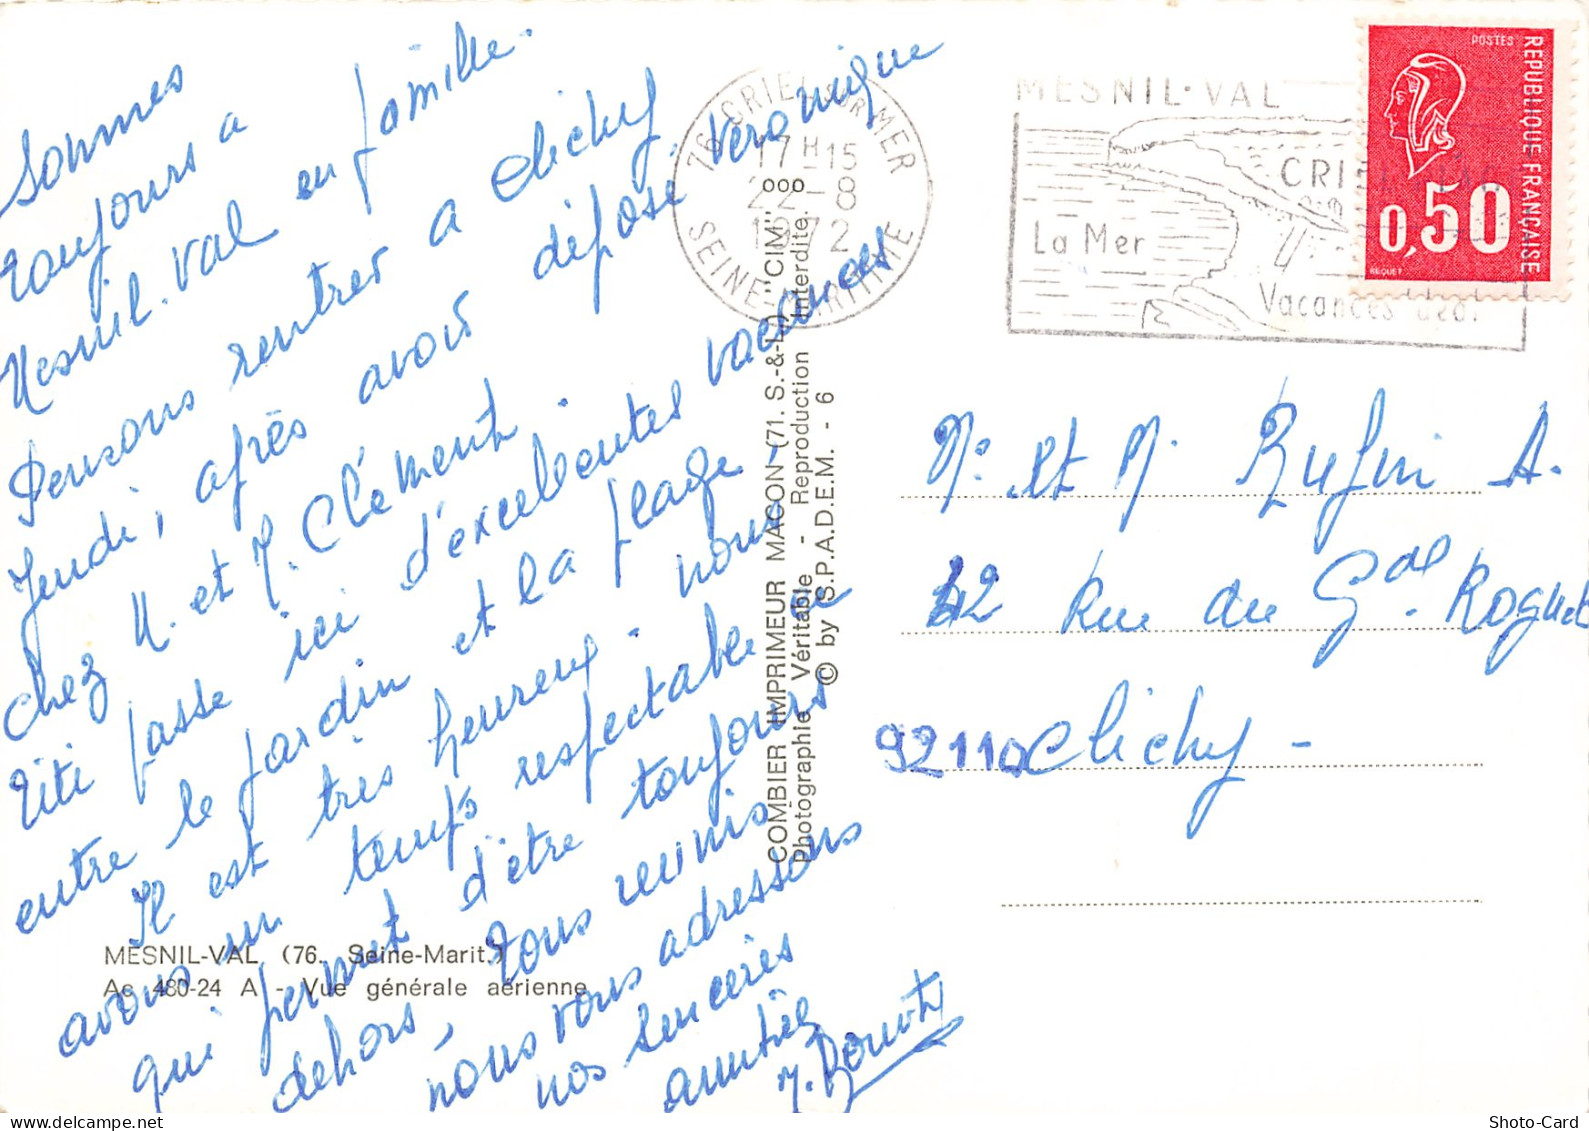 Sommes
toujours à
Mesnil-Val en famille.
Pensons rentrer à Clichy
Jeudi, après avoir déposé Véronique
chez M. et J. Clément.
Titi passe ici d'excellentes vacances
entre le jardin et la plage.
Il est très heureux. nous
avons un temps respectable
qui permet d'être toujours
dehors, tous réunis
nous vous adressons
nos sincères
amitiés
MESNIL-VAL (76. Seine-Marit.)
Ac 480-24 A - Vue générale aérienne
COMBIER IMPRIMEUR MACON (71. S.-&-L.) "CIM"
Photographie Véritable - Reproduction Interdite.
© by S.P.A.D.E.M. - 6
76 CRIEL SUR MER
17 H 15
22 - 8
1972
SEINE MARITIME
MESNIL-VAL
La Mer
POSTES
REPUBLIQUE FRANÇAISE
0,50
BEQUET
M. et M. Rufin A.
42 Rue du Gal. Roguet
92110 Clichy -
Shoto-Card
delcampe.net